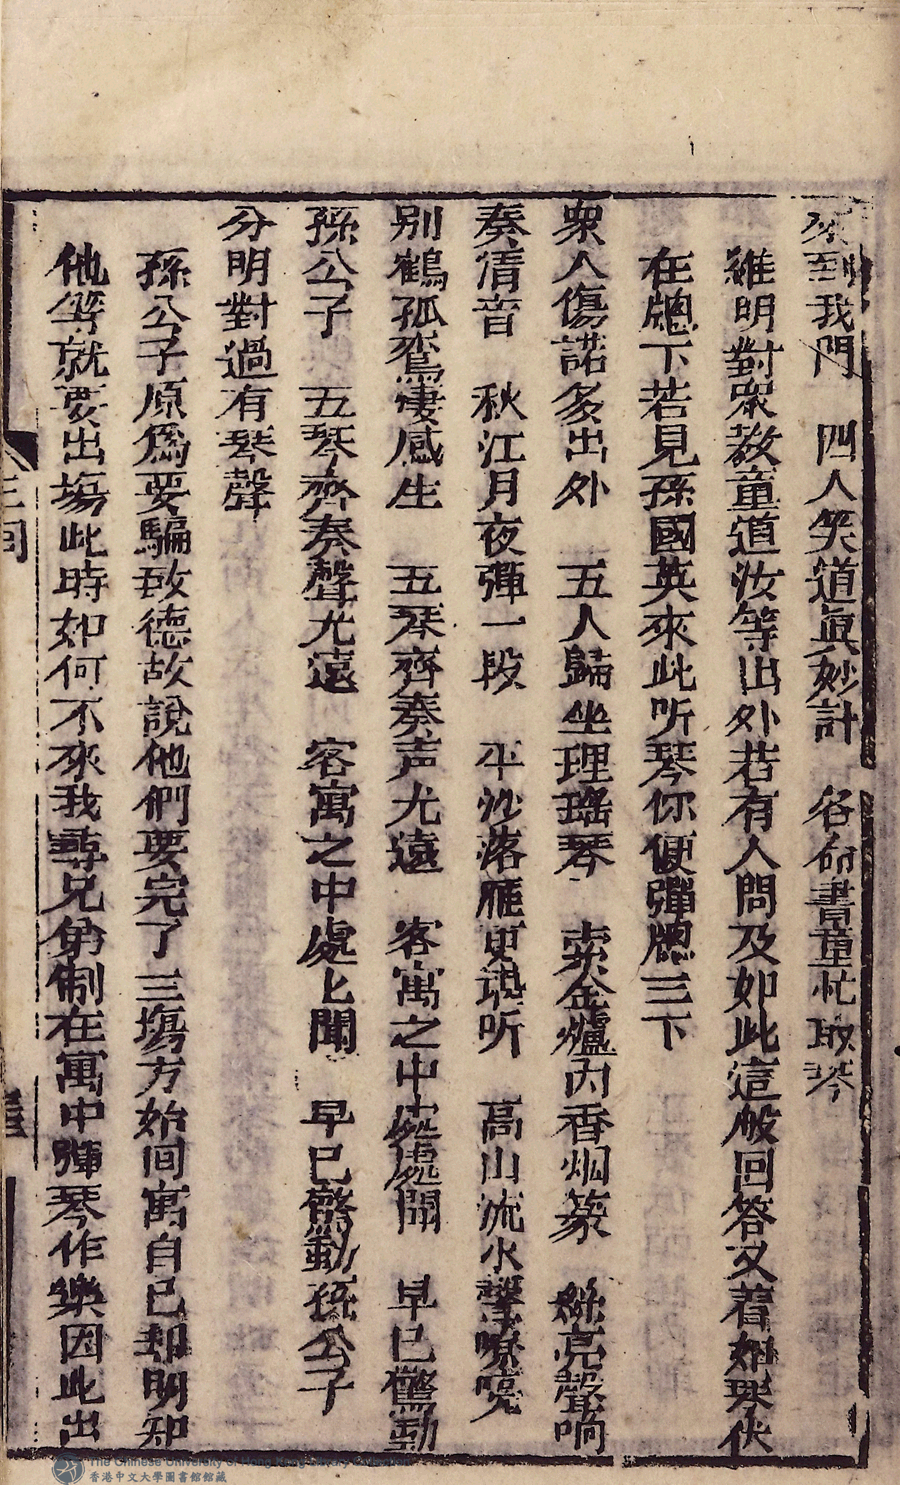 來到我門　四人笑道眞妙計　各命書童忙取琴
雖明對衆教童道汝等出外若有人問及如此這般回答又着如珠伏
在牕下若見孫國英來此听琴你便彈牕三下
衆人傷諾多出外　五人歸坐理瑤琴　索金爐內香烟篆　絲亮聲响
奏清音　秋江月夜彈一段　平沙落雁更堪听　高山流水聲嘹喨
别鶴孤鸞凄感生　五琴齊奏声尤遠　客寓之中處處聞　早已驚動
孫公子　五琴齊奏聲尤遠　客寓之中處匕聞　早已驚動孫公子
分明對過有琴聲
孫公子原爲要騙致德故說他們要完了三塲方始囘寓自已却明知
他等就要出塲此時如何不來我尋兄弟制在寓中彈琴作樂因此出
三回
The Chinese University of Hong Kong Library Collection
香港中文大學圖書館館藏